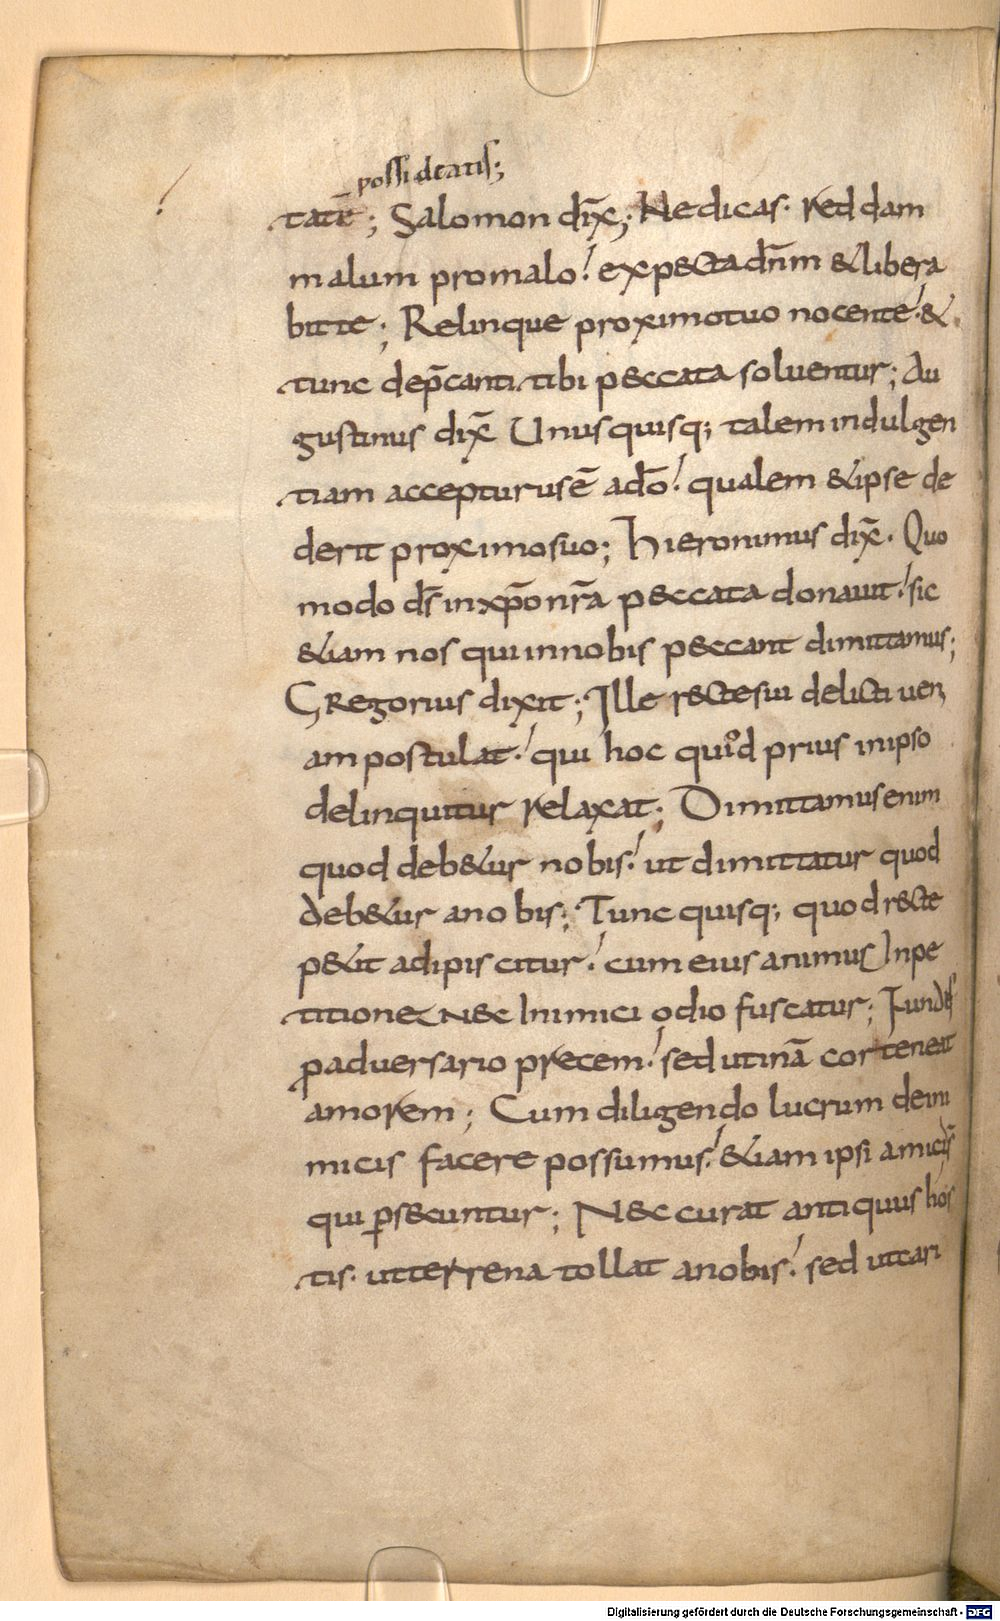 possideatis;
tatē; Salomon dix̄; Ne dicas. reddam
malum promalo! expecta dn̄m & libera
bit te; Relinque proximo tuo nocentē! &
tunc dep̄canti tibi peccata soluentur; Au
gustinus dix̄ Unusquisq; talem indulgen
tiam accepturus ē ad̄o! qualem & ipse de
derit proximo suo; Hieronimus dix̄. Quo
modo d̄s in xp̄o nr̄a peccata donauit! sic
&iam nos qui in nobis peccant dimittamus;
Gregorius dixit; Ille recte sui delicti ueni
am postulat! qui hoc quod prius in ipso
delinquitur relaxat; Dimittamus enim
quod deb&ur nobis! ut dimittatur quod
deb&ur a nobis; Tunc quisq; quod recte
p&it adipiscitur! cum eius animus In pe
titione nec Inimici odio fuscatur; Fundis
p̱ aduersario precem! sed utinā cor teneat
amorem; Cum diligendo lucrum de ini
micis facere possumus! &iam ipsi amici s̄
qui p̱secuntur; Nec curat antiquus hos
tis. ut terrena tollat a nobis! sed ut cari
Digitalisierung gefördert durch die Deutsche Forschungsgemeinschaft - DFG